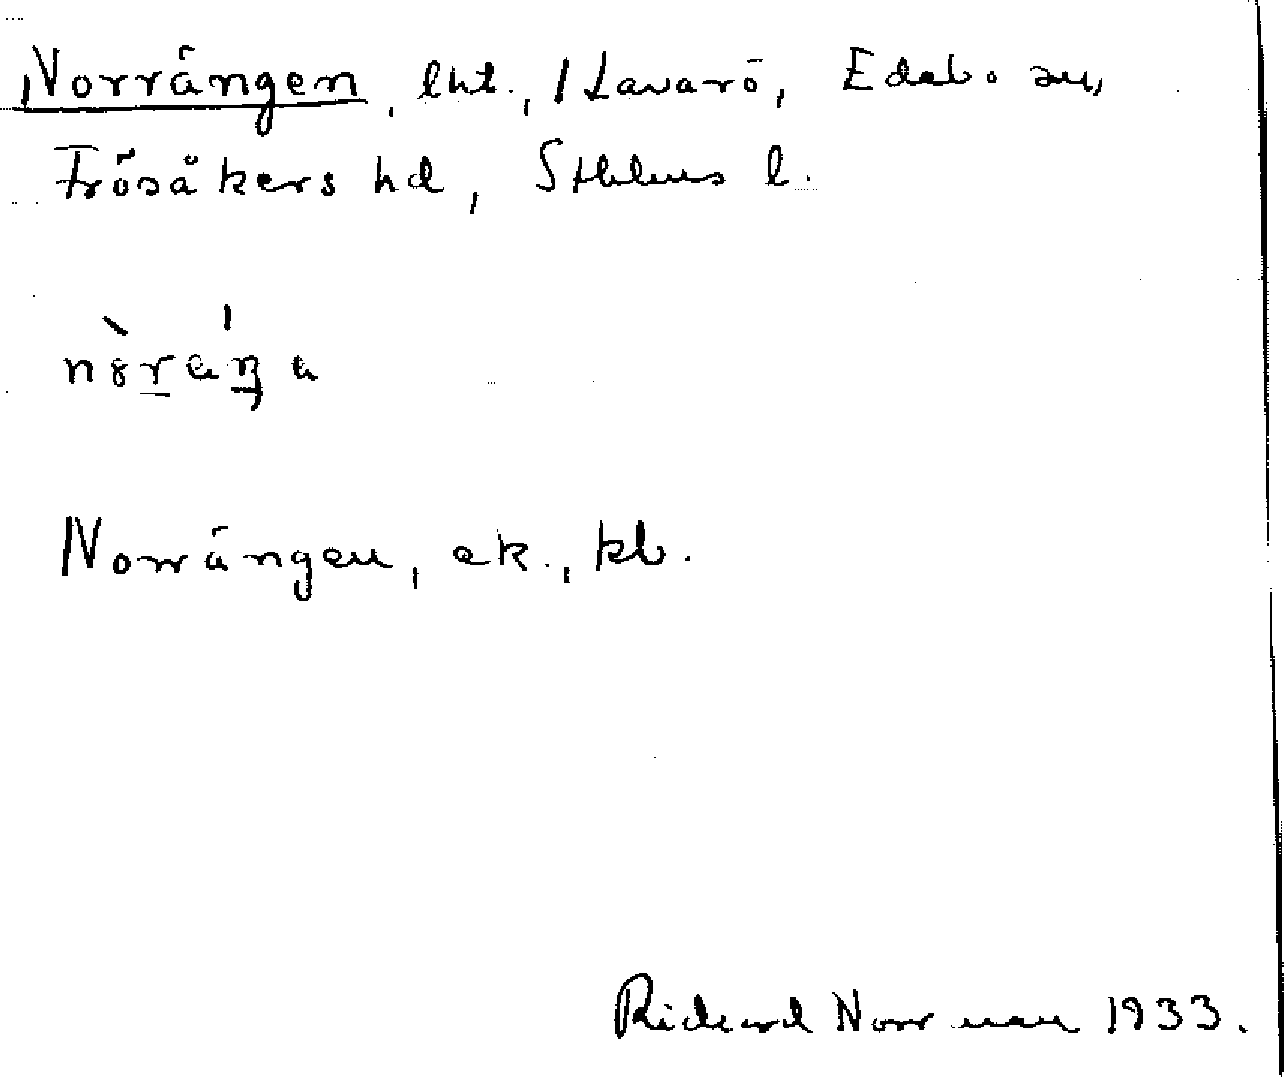 Norrängen, lht., Havarö, Edebo sn,
Frösåkers hd, Sthlms l.
Norrängen, ek., kb.
Richard Norrman 1933.